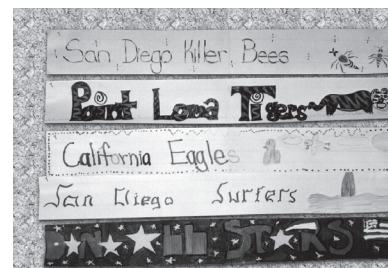 San Diego Killer Bees
Point Loma Tigers
California Eagles
San Diego Surfers
STARS